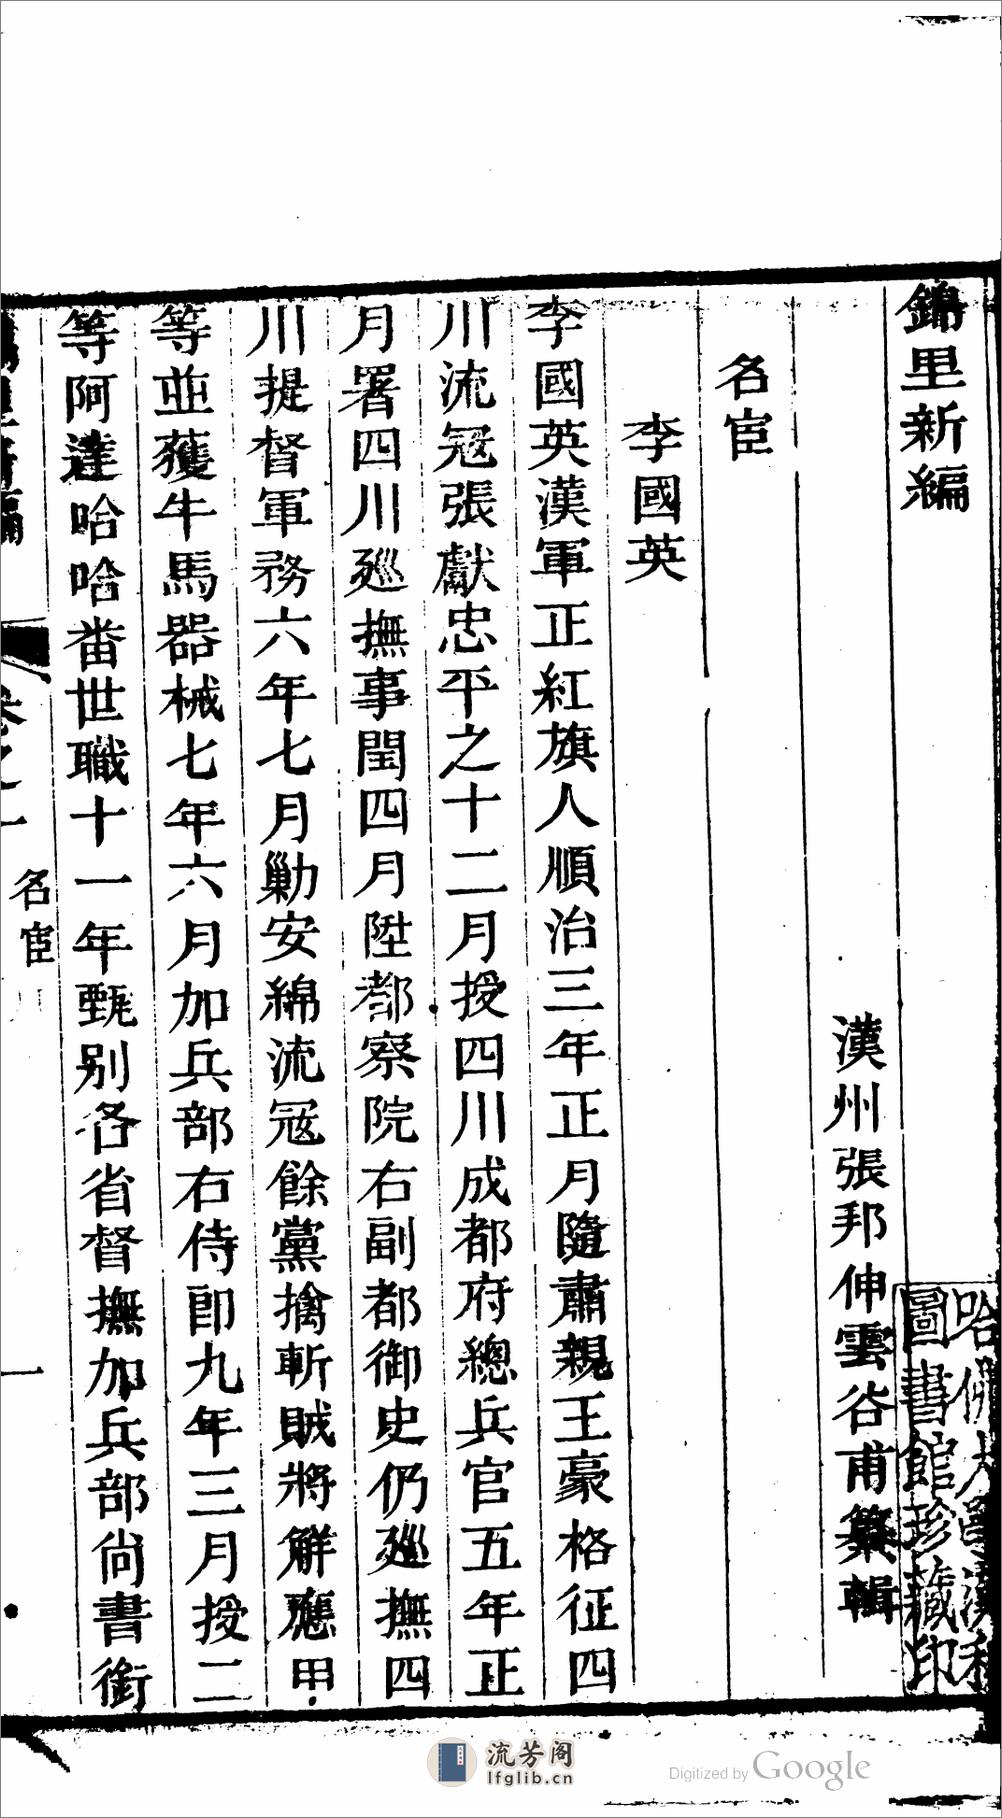 錦里新編
漢州張邦伸雲谷甫纂輯
名宦
李國英
李國英漢軍正紅旗人順治三年正月隨肅親王豪格征四
川流冦張獻忠平之十二月授四川成都府總兵官五年正
月署四川廵撫事閏四月陞都察院右副都御史仍廵撫四
川提督軍務六年七月勦安綿流冦餘黨擒斬賊將解應甲
等並獲牛馬器械七年六月加兵部右侍郎九年三月授二
等阿達哈哈畨世職十一年甄别各省督撫加兵部尚書銜
卷之一
名宦
一
哈佛大學漢和
圖書館珍藏印
流芳阁
lfglib.cn
Digitized by Google